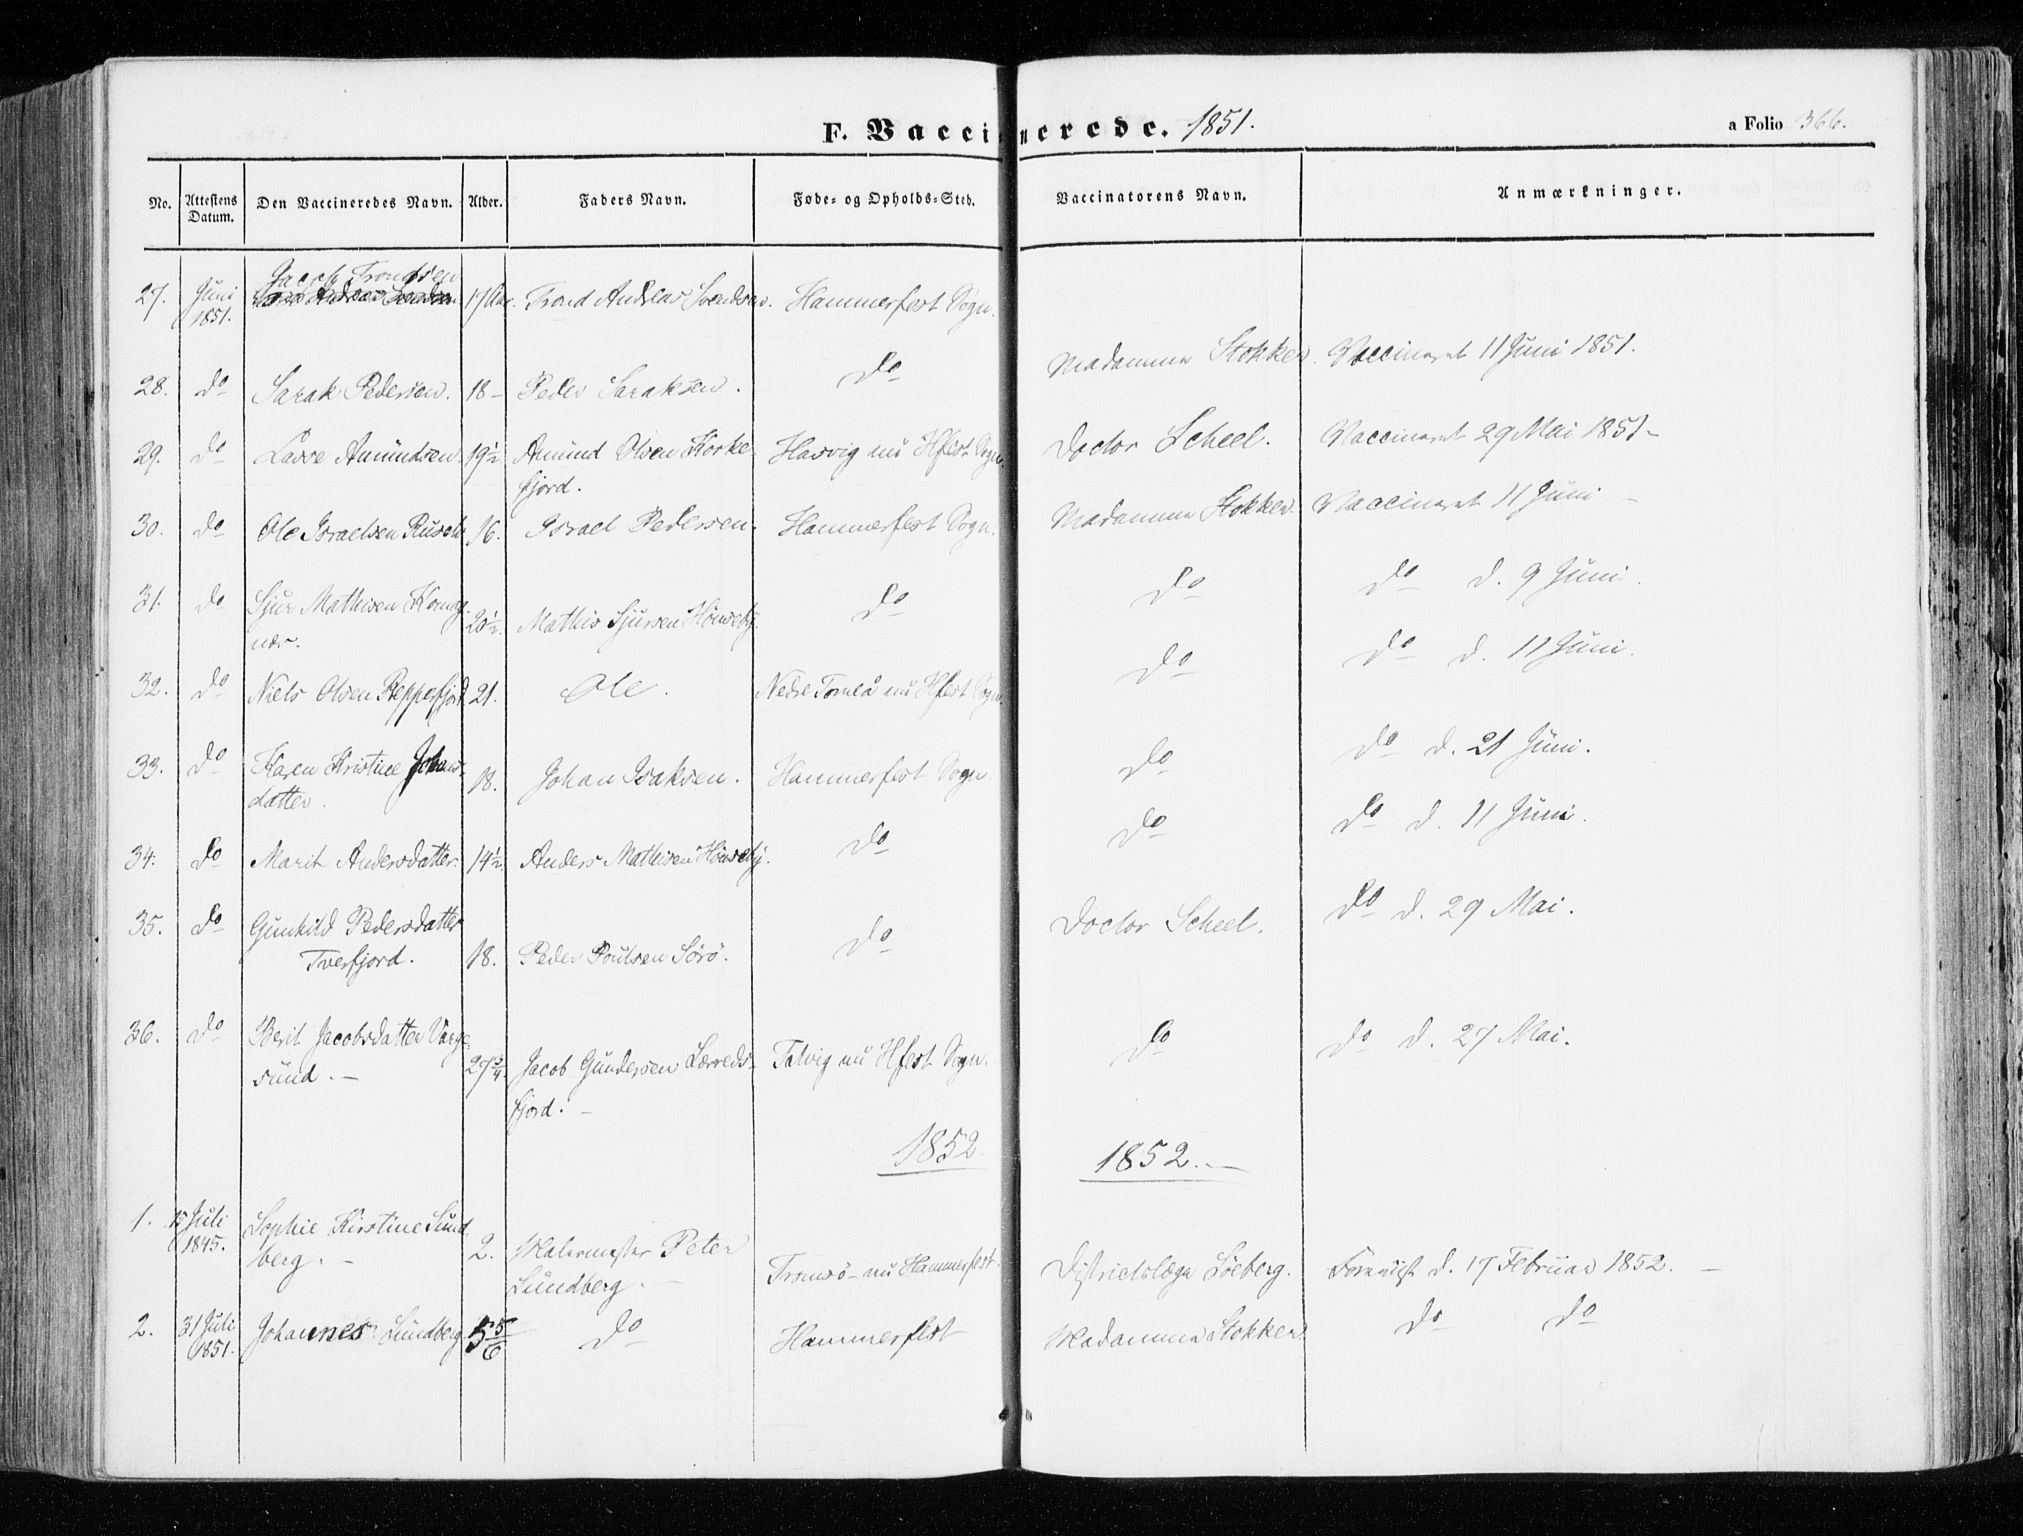 F. Vaccinerede. 1851.
a Folio 366.
No. Attestens Datum. Den Vaccineredes Navn. Alder. Faders Navn. Føde- og Opholds-Sted. Vaccinatorens Navn. Anmærkninger.
27. Juni 1851. Jacob Trondsen 17 Aar. Trond Andreas Svendsen. Hammerfest Sogn. Madamme Stokker. Vaccineret 11 Juni 1851.
28. do Sarak Pedersen. 18 – Peder Saraksen. do
29. do Lasse Amundsen 19½ Amund Olsen Korke- Hasvig nu Hfest Sogn. Doctor Scheel. Vaccineret 29 Mai 1851 –
fjord.
30. do Ole Israelsen 16. Israel Pedersen. Hammerfest Sogn. Madamme Stokker. Vaccineret 11 Juni –
31. do Sjur Mathisen 20½. Mathis Sjursen Hönseby. do do do d. 9 Juni.
nes.
32. do Niels Olsen Reppefjord 21. Ole. Nedre Torneå nu Hfest Sogn. do do d. 11 Juni.
33. do Karen Kristine Johans- 18. Johan Isaksen. Hammerfest Sogn. do do d. 21 Juni.
datter.
34. do Marit Andersdatter. 14½ Anders Mathisen Hönseby. do do do d. 11 Juni.
35. do Gunhild Pedersdatter Doctor Scheel. do d. 29 Mai.
Tverfjord. 18. Peder Poulsen Sörö. do
36. do Berit Jacobsdatter Varge- do do d. 27 Mai.
sund. – 27¾. Jacob Gundersen Lerreds- Talvig nu Hfest Sogn.
fjord. –
1852. 1852. –
1. 15 Juli 1845. Sophie Kirstine Sund
berg. – 2. Malermester Peter Tromsö – nu Hammerfest. Districtslæge Söeberg. Forevist d. 17 Februar 1852. –
Lundberg. –
2. 31 Juli 1851. Johannes Lundberg 5 5/6 do Hammerfest Madamme Stokker do do